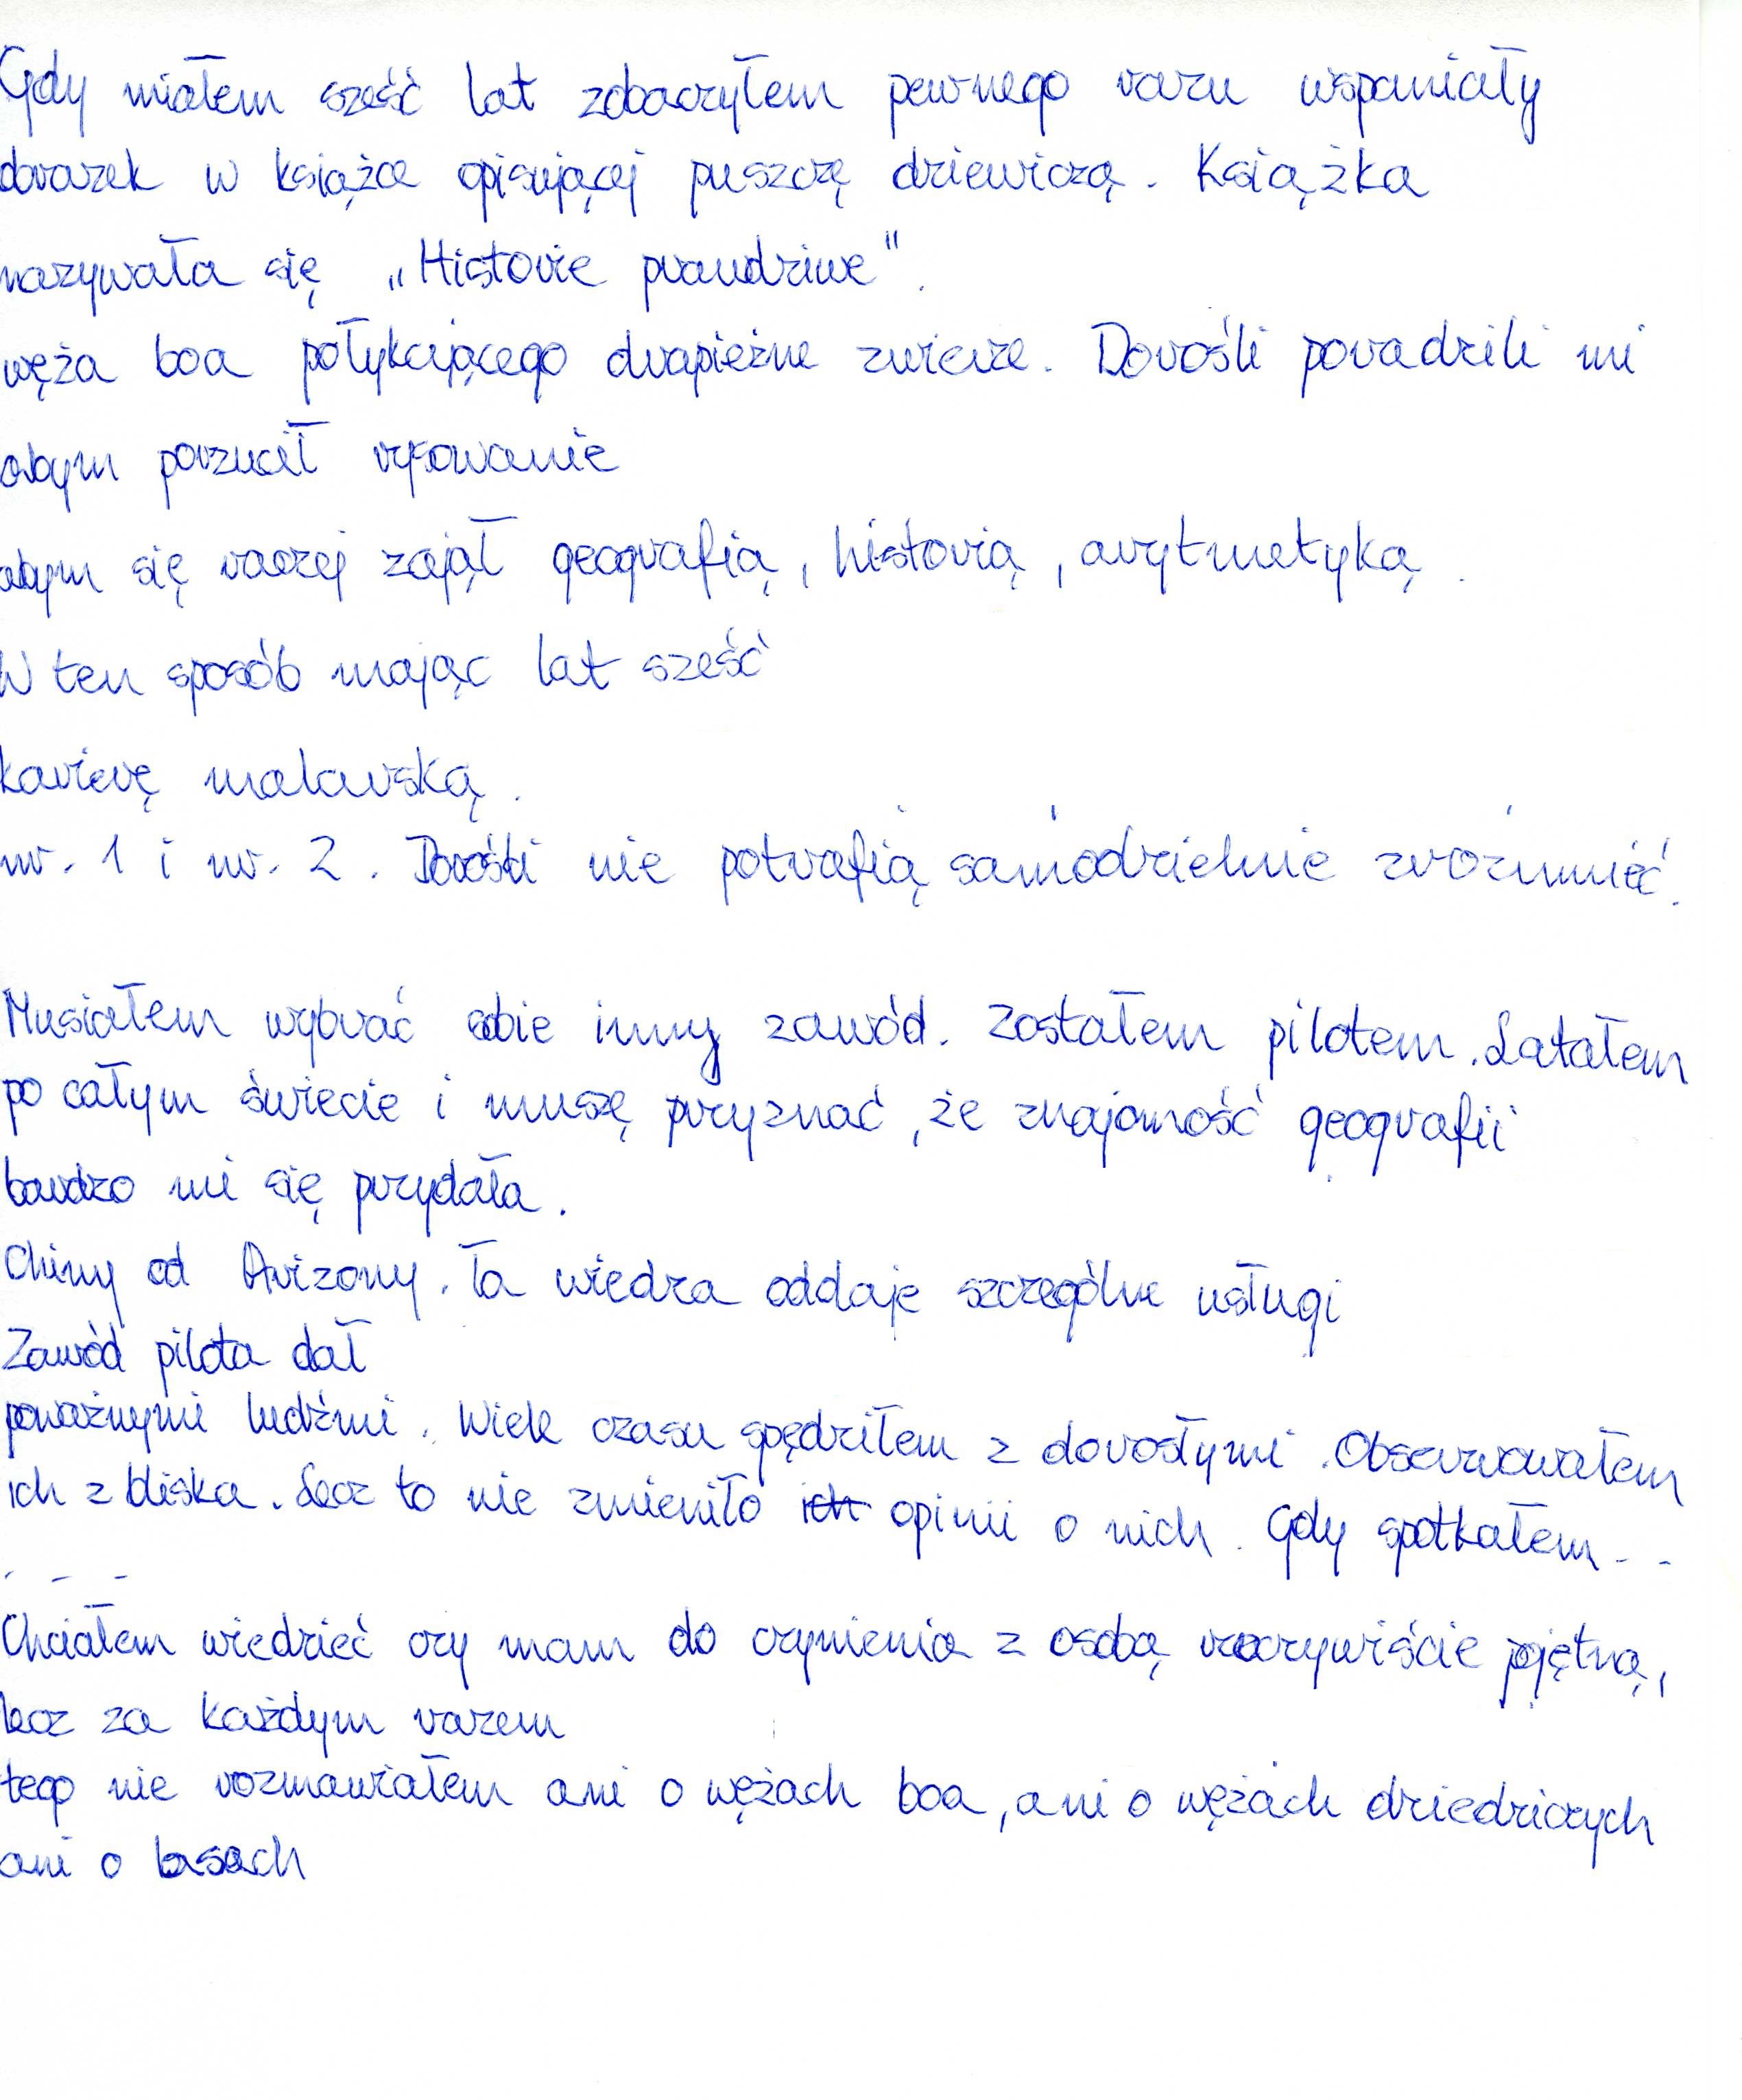 Gdy miałem sześć lat zobaczyłem pewnego razu wspaniały
obrazek w książce opisującej puszczę dziewiczą. Książka
nazywała się „Historie prawdziwe".
węża boa połykającego drapieżne zwierze. Dorośli poradzili mi
abym porzucił rysowanie
abym się raczej zajął geografią, historią, arytmetyką.
W ten sposób mając lat sześć
karierę malarską.
nr. 1 i nr. 2. Dorośli nie potrafią samodzielnie zrozumieć.
Musiałem wybrać sobie inny zawód. Zostałem pilotem. Latałem
po całym świecie i muszę przyznać, że znajomość geografii
bardzo mi się przydała.
Chiny od Arizony. Ta wiedza oddaje szczególne usługi
Zawód pilota dał
poważnymi ludźmi. Wiele czasu spędziłem z dorosłymi. Obserwowałem
ich z bliska. Lecz to nie zmieniło ich opinii o nich. Gdy spotkałem - -
- - -
Chciałem wiedzieć czy mam do czynienia z osobą rzeczywiście pojętną,
lecz za każdym razem
tego nie rozmawiałem ani o wężach boa, ani o wężach dziedziczych
ani o lasach